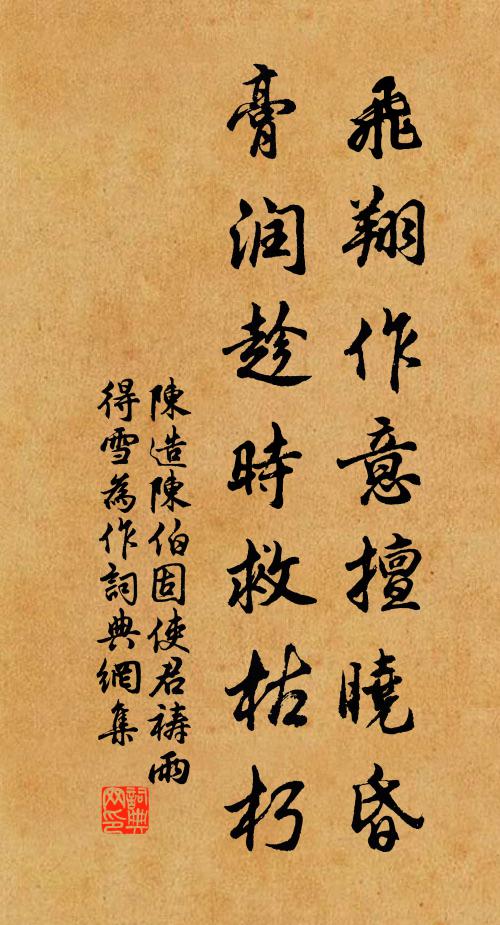 飛翔作意擅曉昏
膏润趁時救枯朽
陳造陳伯固使君禱雨
得雪為作詞典網集
詞典網印